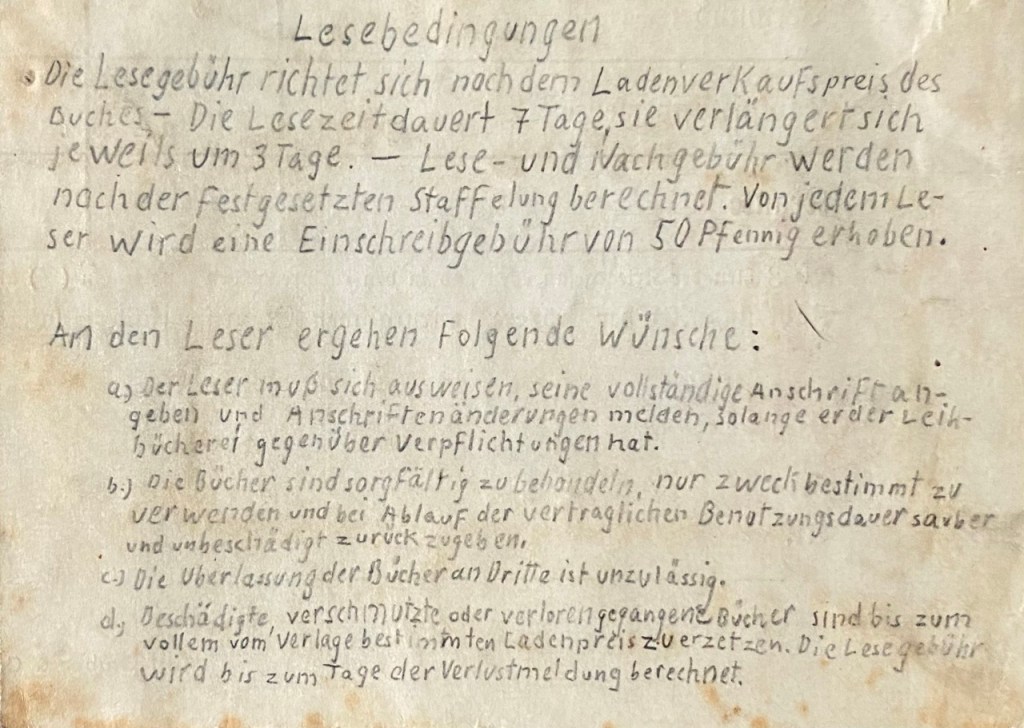 Lesebedingungen
Die Lesegebühr richtet sich nach dem Ladenverkaufspreis des
Buches. – Die Lesezeit dauert 7 Tage, sie verlängert sich
jeweils um 3 Tage. – Lese- und Nachgebühr werden
nach der festgesetzten Staffelung berechnet. Von jedem Le-
ser wird eine Einschreibgebühr von 50 Pfennig erhoben.
An den Leser ergehen folgende Wünsche:
a.) Der Leser muß sich ausweisen, seine vollständige Anschrift an-
geben und Anschriftenänderungen melden, solange er der Leih-
bücherei gegenüber Verpflichtungen hat.
b.) Die Bücher sind sorgfältig zu behandeln, nur zweckbestimmt zu
verwenden und bei Ablauf der vertraglichen Benutzungsdauer sauber
und unbeschädigt zurückzugeben.
c.) Die Überlassung der Bücher an Dritte ist unzulässig.
d.) Beschädigte, verschmutzte oder verlorengegangene Bücher sind bis zum
vollem vom Verlage bestimmten Ladenpreis zu erzetzen. Die Lesegebühr
wird bis zum Tage der Verlustmeldung berechnet.